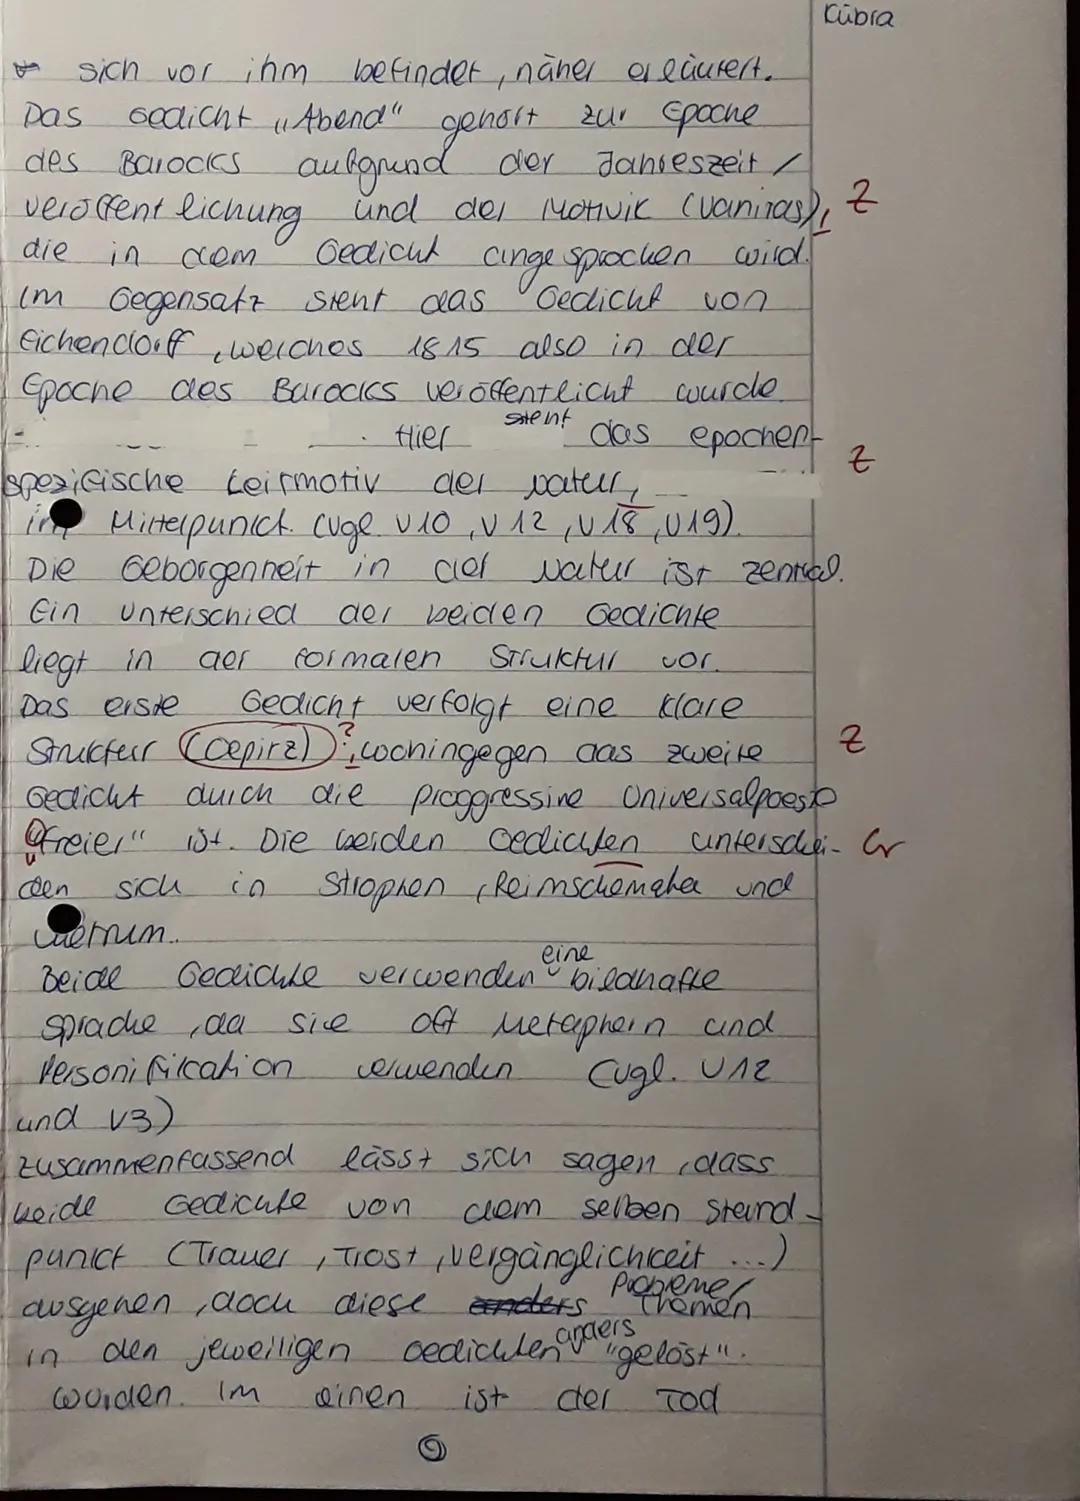 Kübra
sich vor ihm befindet, näher erläutert.
Das Gedicht „Abend" gehört zur Epoche
des Barocks aufgrund der Jahreszeit /
veröffentlichung und der Motivik (vanitas), Z
die in dem Gedicht angesprochen wird.
Im Gegensatz steht das Gedicht von
Eichendorff, welches 1815 also in der
Epoche des Barocks veröffentlicht wurde
Hier steht das epochen-
spezifische Leitmotiv der Natur, Z
im Mittelpunkt. (vgl. V10, V12, V18, V19).
Die Geborgenheit in der Natur ist zentral.
Ein Unterschied der beiden Gedichte
liegt in der formalen Struktur vor.
Das erste Gedicht verfolgt eine klare
Struktur (cepirz)?, wohingegen das zweite Z
Gedicht durch die proggressive Universalpoesie
„freier" ist. Die beiden Gedichten unterschei- Gr
den sich in Strophen, Reimschemata und
Metrum.
Beide Gedichte verwenden eine bildhafte
Sprache, da sie oft Metaphern und
Personifikation verwenden (vgl. V12
und V3)
Zusammenfassend lässt sich sagen, dass
beide Gedichte von dem selben Stand-
punkt (Trauer, Trost, Vergänglichkeit ...)
ausgehen, doch diese anders Probleme/Themen
in den jeweiligen Gedichten anders "gelöst".
wurden. Im einen ist der Tod
9